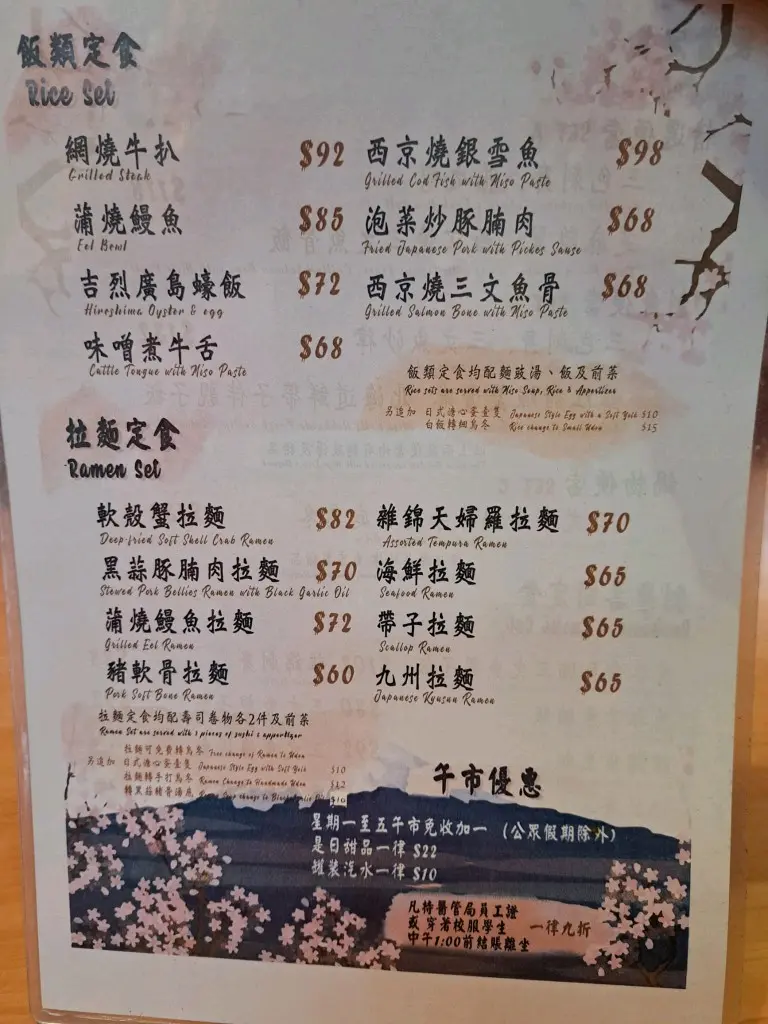 飯類定食
Rice Set
網燒牛扒 $92
Grilled Steak
西京燒銀雪魚 $98
Grilled Cod Fish with Miso Paste
蒲燒鰻魚 $85
Eel Bowl
泡菜炒豚腩肉 $68
Fried Japanese Pork with Pickes Sause
吉烈廣島蠔飯 $72
Hiroshima Oyster & egg
西京燒三文魚骨 $68
Grilled Salmon Bone with Miso Paste
味噌煮牛舌 $68
Cattle Tongue with Miso Paste
飯類定食均配麵豉湯、飯及前菜
Rice sets are served with Miso Soup, Rice & Appertizer
另追加 日式溏心蛋壹隻 Japanese Style Egg with a Soft Yolk $10
白飯轉細烏冬 Rice change to Small Udon $15
拉麵定食
Ramen Set
軟殼蟹拉麵 $82
Deep-fried Soft Shell Crab Ramen
雜錦天婦羅拉麵 $70
Assorted Tempura Ramen
黑蒜豚腩肉拉麵 $70
Stewed Pork Bellies Ramen with Black Garlic Oil
海鮮拉麵 $65
Seafood Ramen
蒲燒鰻魚拉麵 $72
Grilled Eel Ramen
帶子拉麵 $65
Scallop Ramen
豬軟骨拉麵 $60
Pork Soft Bone Ramen
九州拉麵 $65
Japanese Kyusun Ramen
拉麵定食均配壽司卷物各2件及前菜
Ramen Set are served with 2 pieces of sushi & appertizer
拉麵可免費轉烏冬 Free change of Ramen to Udon
另追加 日式溏心蛋壹隻 Japanese Style Egg with Soft Yolk $10
拉麵轉手打烏冬 Ramen Change to Handmade Udon $12
轉黑蒜豬骨湯底 Soup change to Black $10
午市優惠
星期一至五午市免收加一 (公眾假期除外)
是日甜品一律 $22
罐裝汽水一律 $10
凡持醫管局員工證
或 穿著校服學生 一律九折
中午1:00前結賬離坐